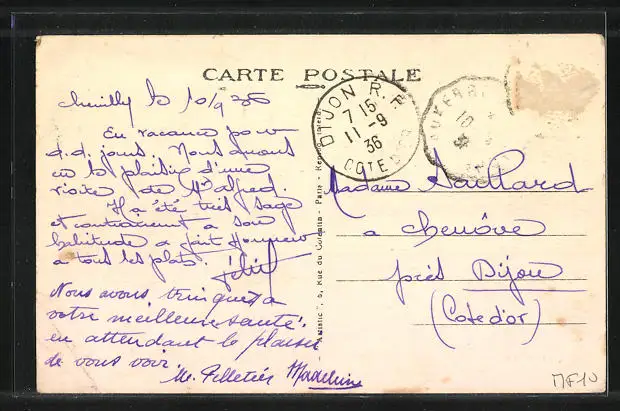 CARTE POSTALE
Chevilly le 10/9 36
En vacance pour
q.q. jours. Nous avons
eu le plaisir d'une
visite de Mr Alfred.
Il a été très sage
et contrairement a son
habitude a fait Honneur
a tous les plats.
Nous avons trinquer a
votre meilleure santé.
en attendant le plaisir
de vous voir.
M. Pelletier Madeleine
DIJON R.P.
7 15
11 - 9
36
COTE D'OR
10
36
Madame Gaillard
a Chenôve
près Dijon
(Cote d'or)
5, Rue du - Paris -
MF10